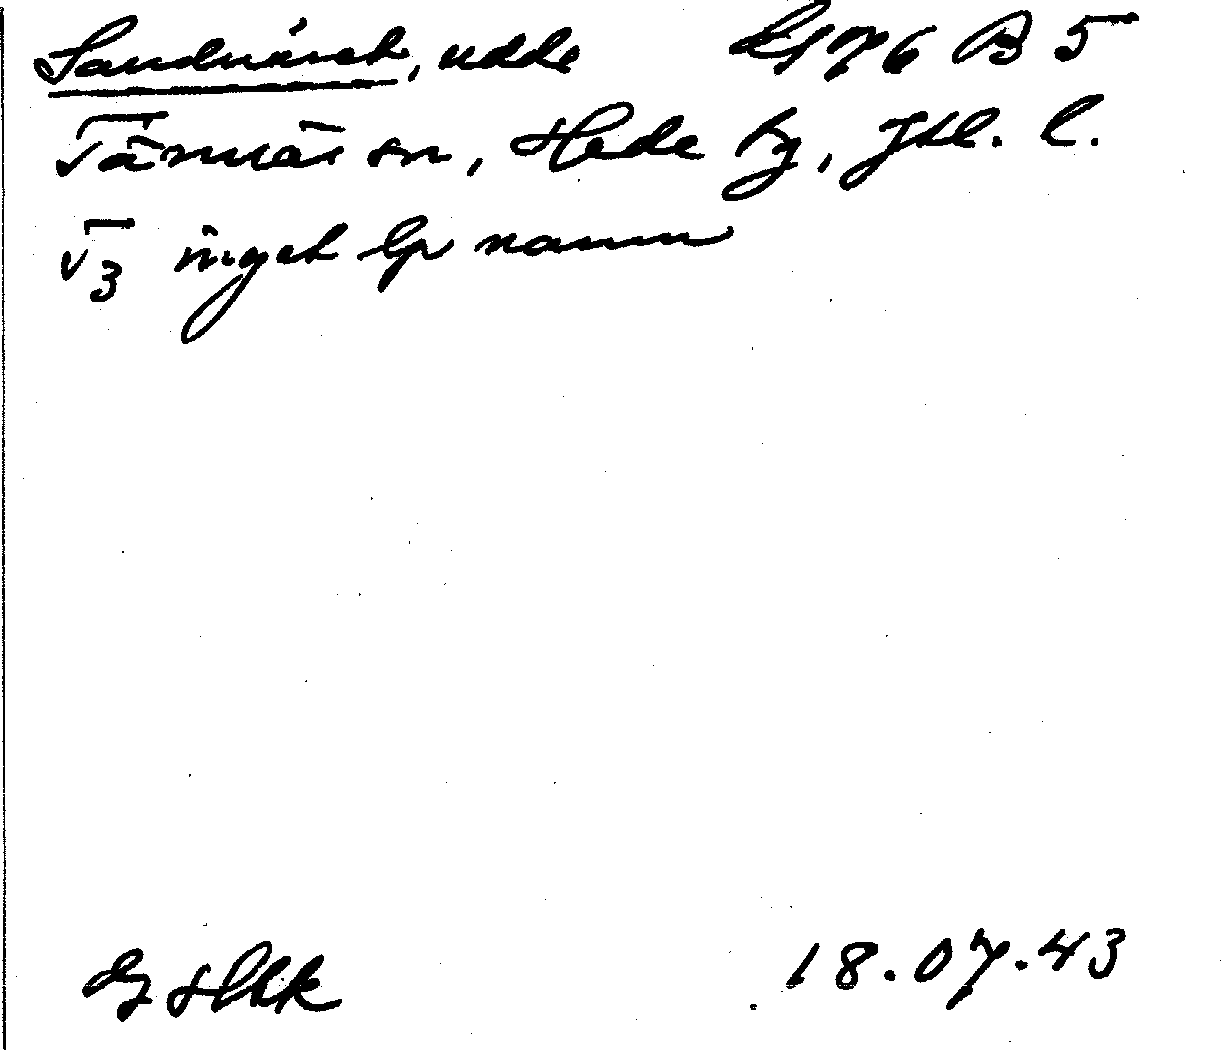 Sandnäset, udde
Tännäs sn, Hede tg, Jtl. l.
T3 inget lp namn
18.07.43